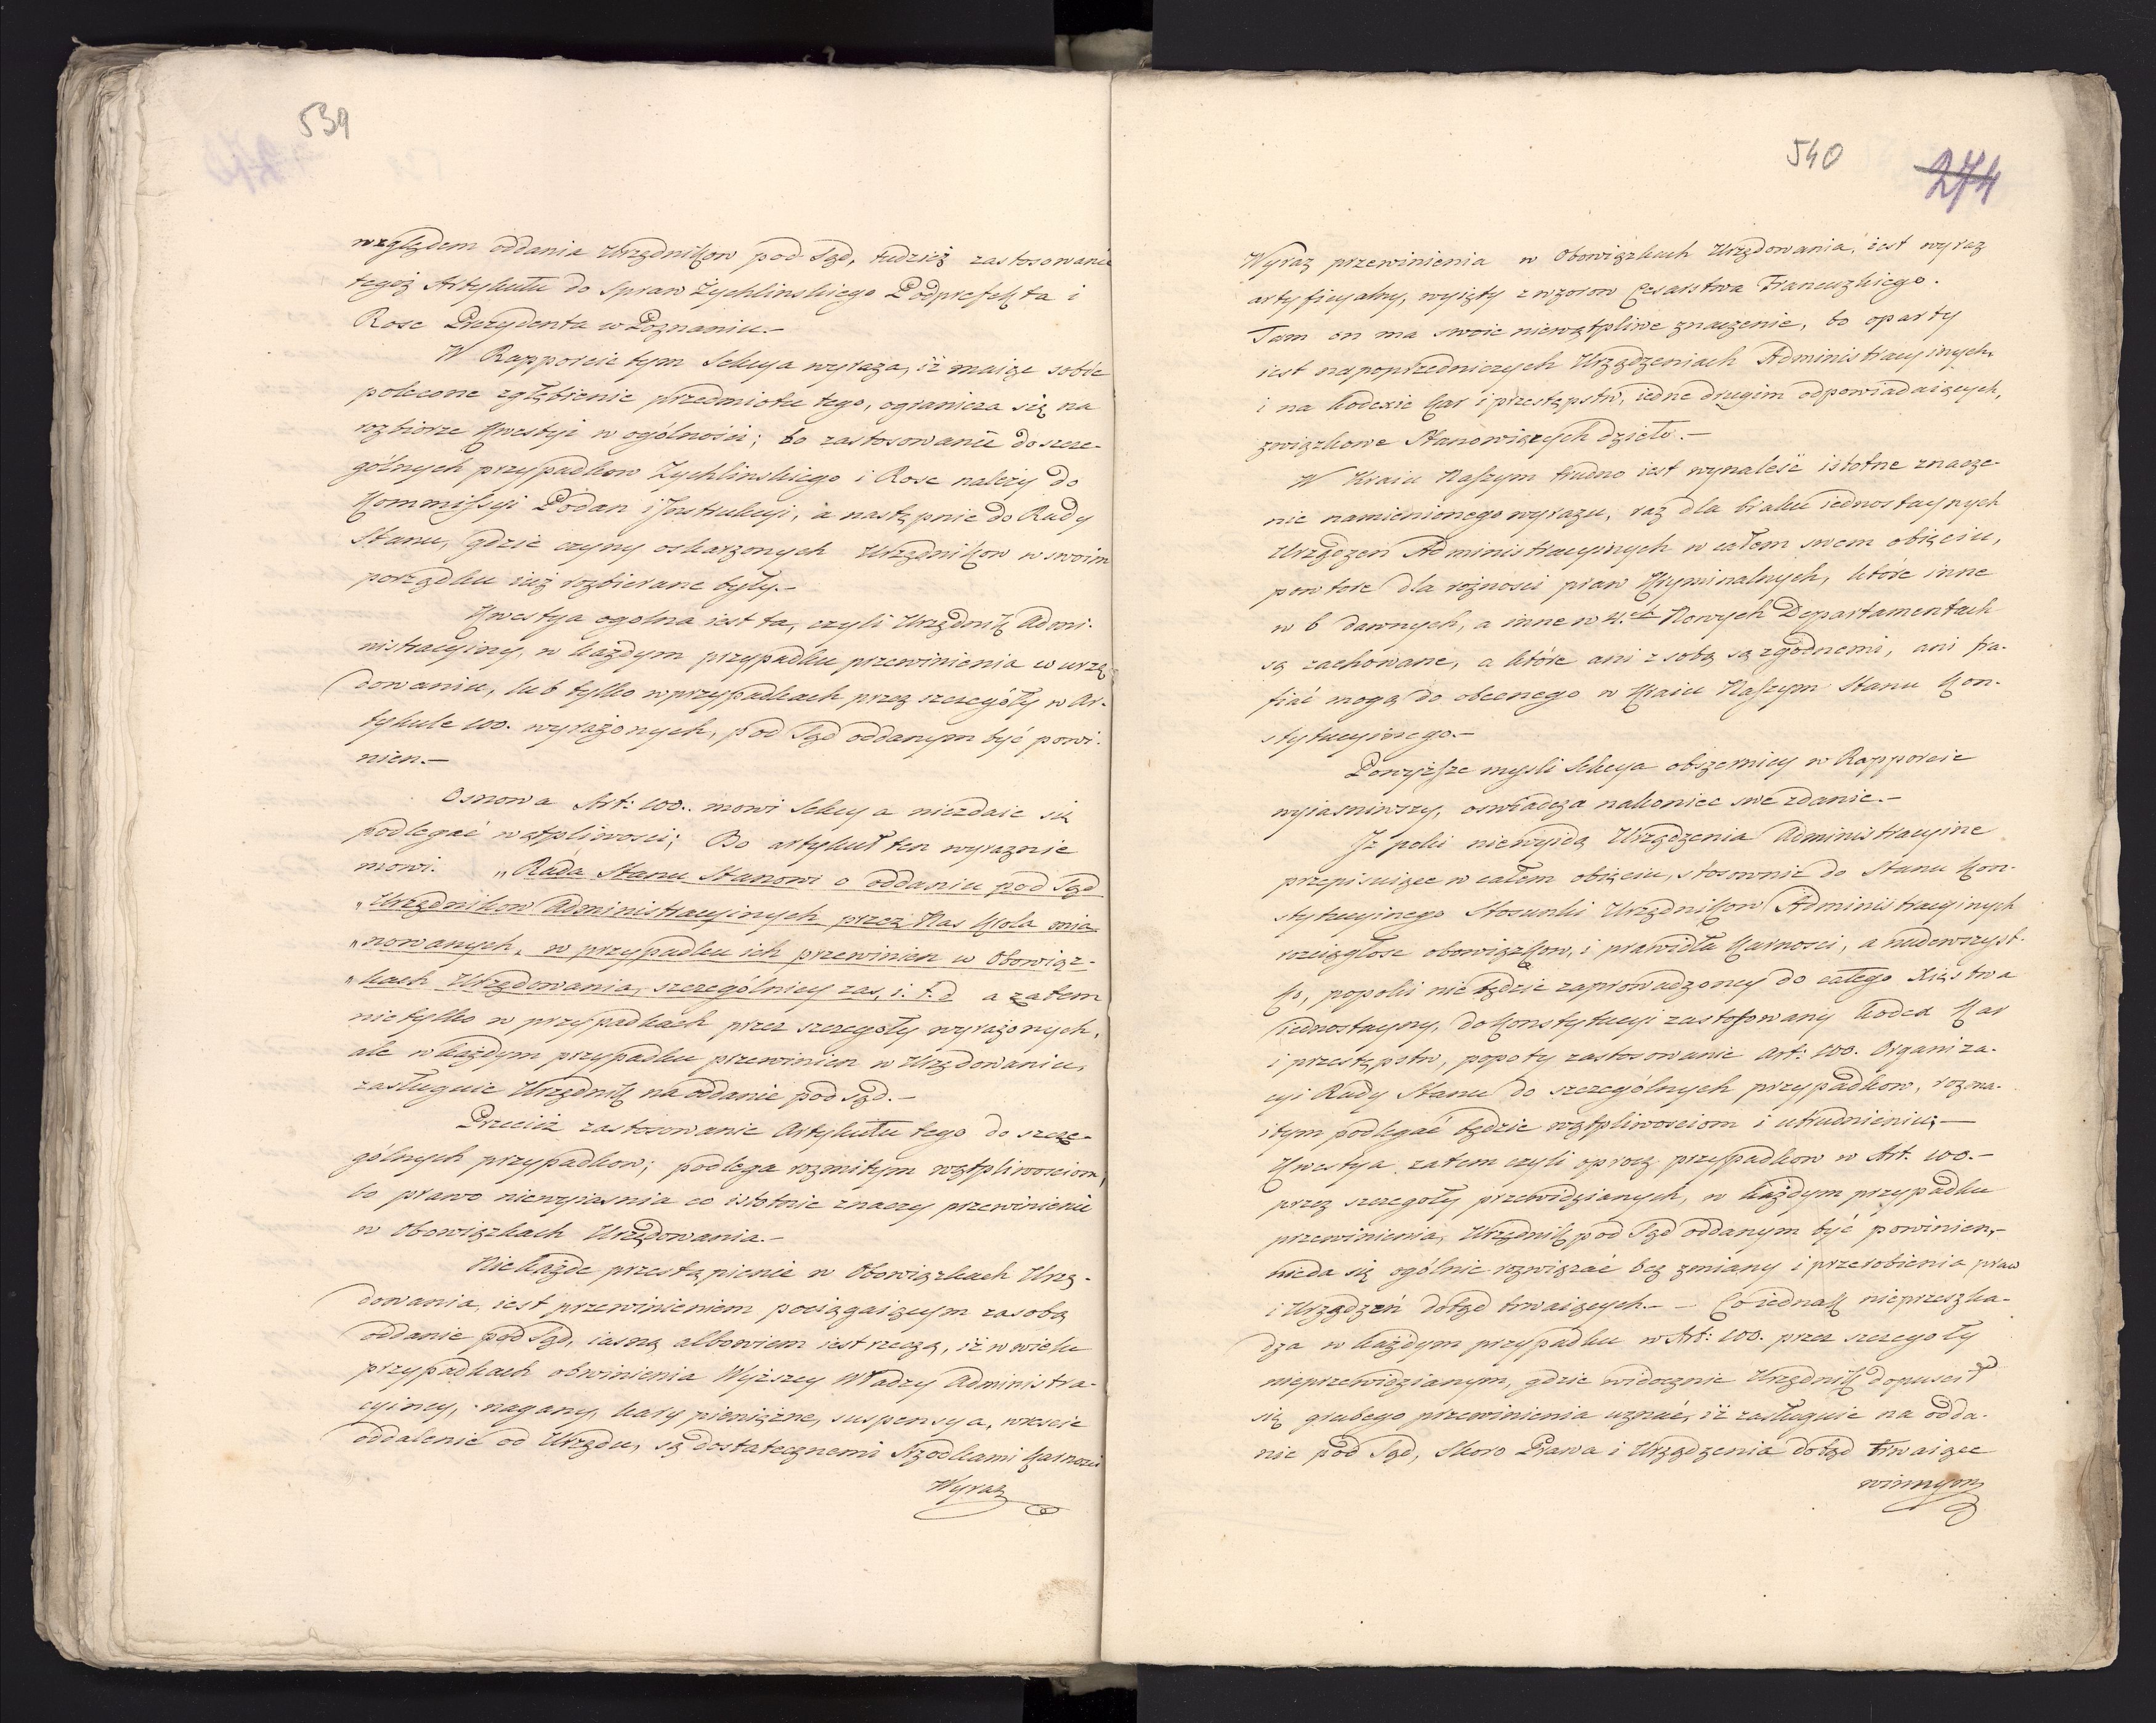 539
względem oddania Urzędnikow pod Sąd, tudzież zastosowanie
tegoż Artykułu do Spraw Zychlinskiego Podprefekta i
Rose Prezydenta w Poznaniu.—
W Rapporcie tym Sekcya wyraza, iż maiąc sobie
polecone zgłębienie przedmiotu tego, ogranicza się na
rozbiorze kwestyi w ogólności; bo zastosowanie do szcze-
gólnych przypadkow Zychlinskiego i Rose należy do
Kommissyi Podan i Instrukcyi, a następnie do Rady
Stanu, gdzie czyny oskarzonych Urzędnikow w swoim
porządku iuż rozbierane były.—
Kwestya ogolna iest ta, czyli Urzędnik Admi-
nistracyiny, w każdym przypadku przewinienia w urzę
dowaniu, lub tylko w przypadkach przez szczegóły w Ar-
tykule 100. wyrażonych, pod Sąd oddanym być powi-
nien.—
Osnowa Art: 100. mowi Sekcya niezdaie się
podlegać wątpliwosci; Bo artykuł ten wyraznie
mowi. „Rada Stanu Stanowi o oddaniu pod Sąd
„Urzędnikow Administracyinych przez Nas Krola mia-
„nowanych, w przypadku ich przewinien w Obowiąz-
„kach Urzędowania, szczególniey zas, i. t. d. a zatem
nietylko w przypadkach przez szczegoły wyrażonych,
ale w każdym przypadku przewinien w Urzędowaniu,
zasługuie Urzędnik na oddanie pod Sąd.—
Przeciż zastosowanie Artykułu tego do szcze-
gólnych przypadkow; podlega rozmitym wątpliwosciom,
bo prawo niewyiasnia co istotnie znaczy przewinienie
w Obowiązkach Urzędowania.—
Nie każde przestąpienie w Obowiązkach Urzę-
dowania, iest przewinieniem pociągaiącym za sobą
oddanie pod Sąd, iasną albowiem iest rzeczą, iż w wielu
przypadkach obwinienia Wyższey Władzy Administra-
cyiney, nagany, kary pieniężne, suspensya, wrescie
oddalenie od Urzędu, są dostatecznemi Srzodkami karnosci
Wyraz
540
274
Wyraz przewinienia w Obowiązkach Urzędowania, iest wyraz
artyficyalny, wyięty z wzorow Cesarstwa Francuzkiego.
Tam on ma swoie niewątpliwe znaczenie, bo oparty
iest na poprzedniczych Urządzeniach Administracyinych
i na kodexie kar i przestępstw, iedne drugim odpowiadaiących,
związkowe Stanowiących dzieło.—
W Kraiu Naszym trudno iest wynaleść istotne znacze-
nie namienionego wyrazu, raz dla braku iednostaynych
Urządzen Administracyinych w całem swem obięciu,
powtore dla rożnosci praw Kryminalnych, które inne
w 6 dawnych, a inne w 4.ch Nowych Departamentach
są zachowane, a które ani z sobą są zgodnemi, ani tra-
fiać mogą do obecnego w Kraiu Naszym Stanu Kon-
stytucyinego.—
Powyższe mysli Sekcya obszerniey w Rapporcie
wyiasniwszy, oswiadcza nakoniec swe zdanie.—
Iż poki niewyidą Urządzenia Administracyine
przepisuiące w całem obięciu, stosownie do Stanu Kon-
stytucyinego Stosunki Urzędnikow Administracyinych
rozciągłosc obowiązkow, i prawidła karnosci, a nadewszyst-
ko, popoki nie będzie zaprowadzoney do całego Xięstwa
iednostayny, do Konstytucyi zastosowany kodex kar
i przestępstw, popoty zastosowanie Art: 100. Organiza-
cyi Rady Stanu do szczególnych przypadkow, rozma-
itym podlegać będzie wątpliwosciom i utrudnieniu;—
Kwestya zatem czyli oprocz przypadkow w Art. 100.—
przez szczegoły przewidzianych, w każdym przypadku
przewinienia, Urzędnik pod Sąd oddanym być powinien,—
nieda się ogólnie rozwiązać bez zmiany i przerobienia praw
i Urządzeń dotąd trwaiących.— – Co iednak nieprzeszka-
dza w każdym przypadku w Art: 100. przez szczegoły
nieprzewidzianym, gdzie widocznie Urzędnik dopuscił
się grubego przewinienia uznać, iż zasługuie na odda-
nie pod Sąd, Skoro Prawa i Urządzenia dotąd trwaiące
winnym